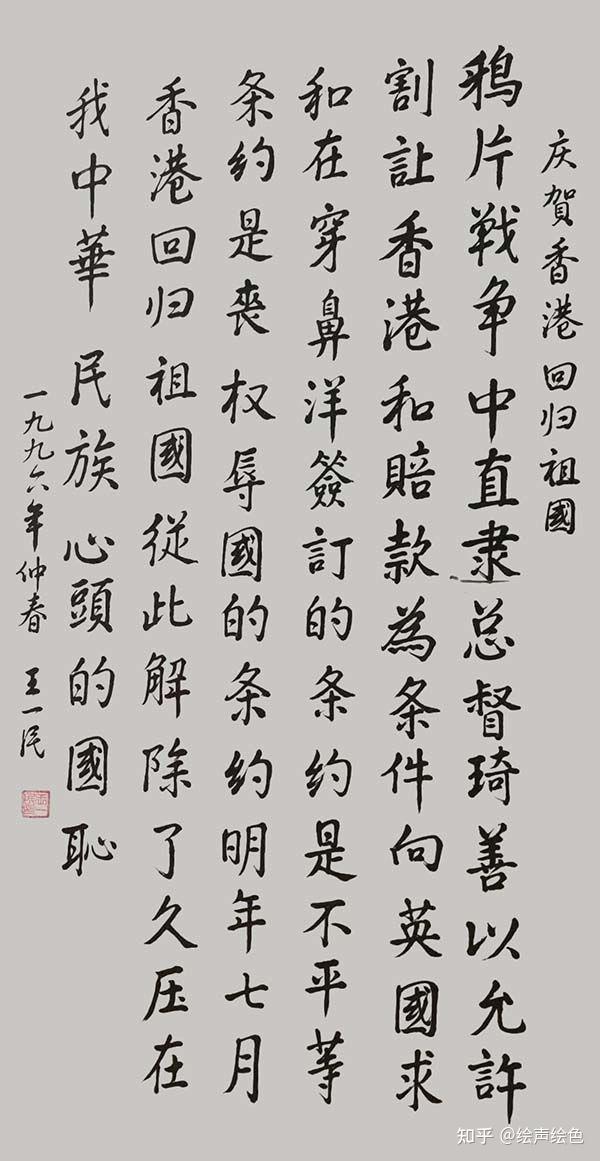 庆贺香港回归祖國
鸦片戦争中直隶总督琦善以允許
割讓香港和賠款為条件向英國求
和在穿鼻洋簽訂的条约是不平等
条约是丧权辱國的条约明年七月
香港回归祖國從此解除了久压在
我中華民族心頭的國恥
一九九六年仲春 王一民
知乎 @绘声绘色